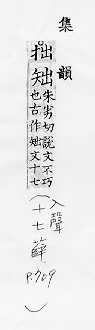 集韻
拙 㑁 朱劣切說文不巧
也古作㑁文十七
(入聲
十七薛
P.709
)